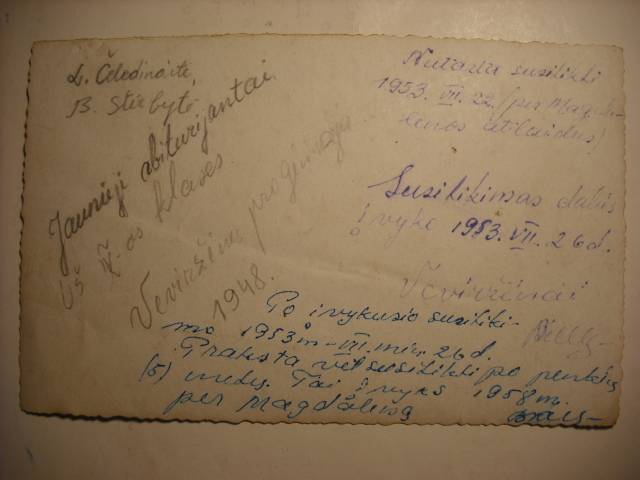 L. Čeledinaitė,
B. Stirbytė.
Jaunieji abiturijantai
Už IV-os klases.
Veviržėnų progimnazija
1948.
Nutarta susitikti
1953. VII. 22. (per Magda-
lenos atlaidus)
Susitikimas dalis
įvyko 1953. VII. 26 d.
Veviržėnai
Po įvykusio susitiki-
mo 1953 m - VII mėn. 26 d.
Praksta vėl susitikti po penkių
(5) metų. Tai įvyks 1958 m.
per Magdaleną